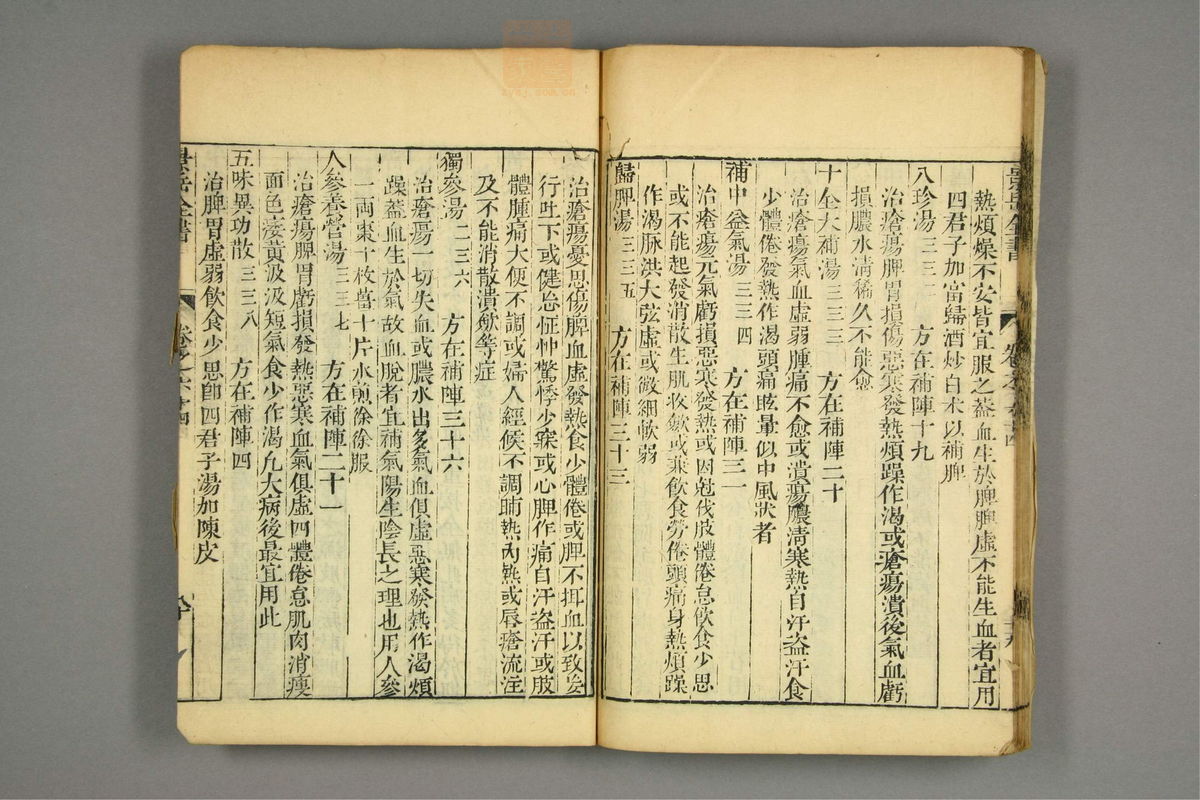 景岳全書
熱煩燥不安皆宜服之葢血生於脾脾虛不能生血者宜用
四君子加當歸酒炒白术以補脾
八珍湯三三 方在補陣十九
治瘡瘍脾胃損傷惡寒發熱煩躁作渴或瘡瘍潰後氣血虧
損膿水清稀久不能愈
十全大補湯三三三 方在補陣二十
治瘡瘍氣血虛弱腫痛不愈或潰瘍膿清寒熱自汗盜汗食
少體倦發熱作渴頭痛眩暈似中風狀者
補中益氣湯三三四 方在補陣三一
治瘡瘍元氣虧損惡寒發熱或因尅伐肢體倦怠飲食少思
或不能起發消散生肌收斂或兼飲食勞倦頭痛身熱煩躁
作渴脉洪大弦虛或微細軟弱
歸脾湯三三五 方在補陣三十三
治瘡瘍憂思傷脾血虛發熱食少體倦或脾不攝血以致妄
行吐下或健怠怔忡驚悸少寐或心脾作痛自汗盜汗或肢
體腫痛大便不調或婦人經候不調晡熱內熱或唇瘡流注
及不能消散潰斂等症
獨參湯二三六 方在補陣三十六
治瘡瘍一切失血或膿水出多氣血俱虛惡寒發熱作渴煩
躁葢血生於氣故血脫者宜補氣陽生陰長之理也用人參
一両棗十枚薑十片水煎徐徐服
人參養營湯三三七 方在補陣二十一
治瘡瘍脾胃虧損發熱惡寒血氣俱虛四體倦怠肌肉消瘦
面色痿黃汲汲短氣食少作渴凢大病後最宜用此
五味異功散三三八 方在補陣四
治脾胃虛弱飲食少思卽四君子湯加陳皮
景岳全書 卷之六十四